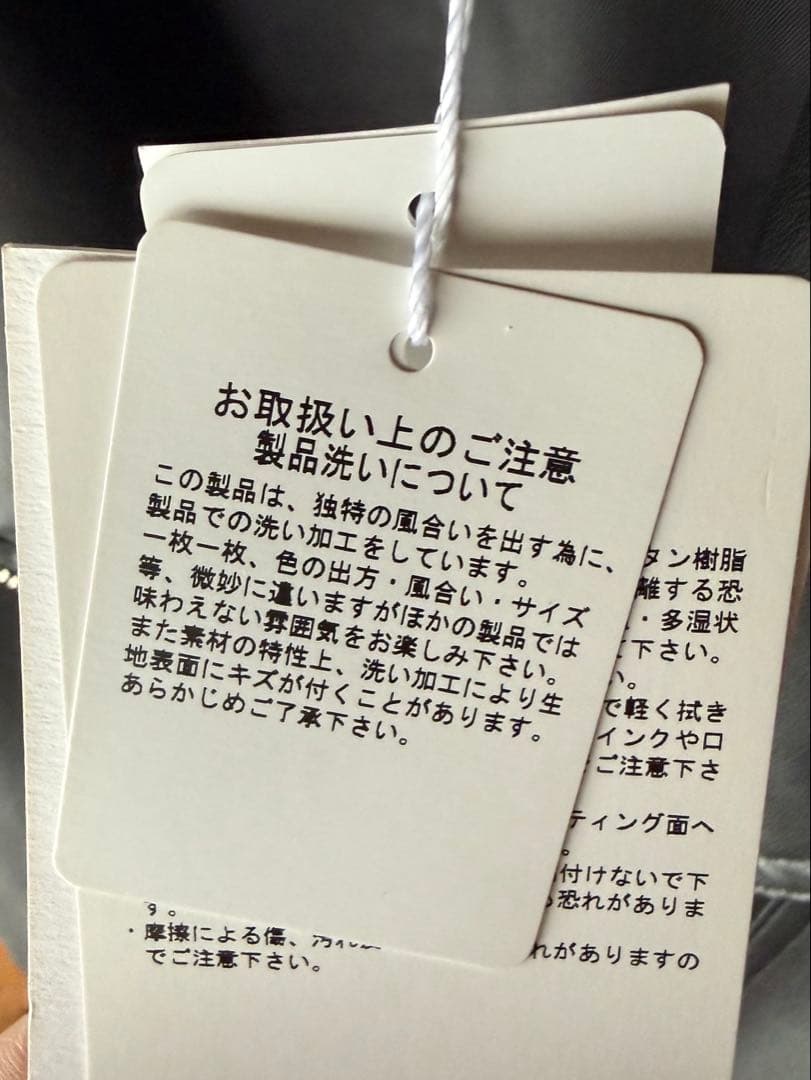 お取扱い上のご注意
製品洗いについて
この製品は、独特の風合いを出す為に、
製品での洗い加工をしています。
一枚一枚、色の出方・風合い・サイズ
等、微妙に違いますがほかの製品では
味わえない雰囲気をお楽しみ下さい。
また素材の特性上、洗い加工により生
地表面にキズが付くことがあります。
あらかじめご了承下さい。
タン樹脂
離する恐
・多湿状
て下さい。
い。
で軽く拭き
インクや口
ご注意下さ
ティング面へ
。
付けないで下
る恐れがありま
す。
・摩擦による傷、汚れ
れがありますの
でご注意下さい。